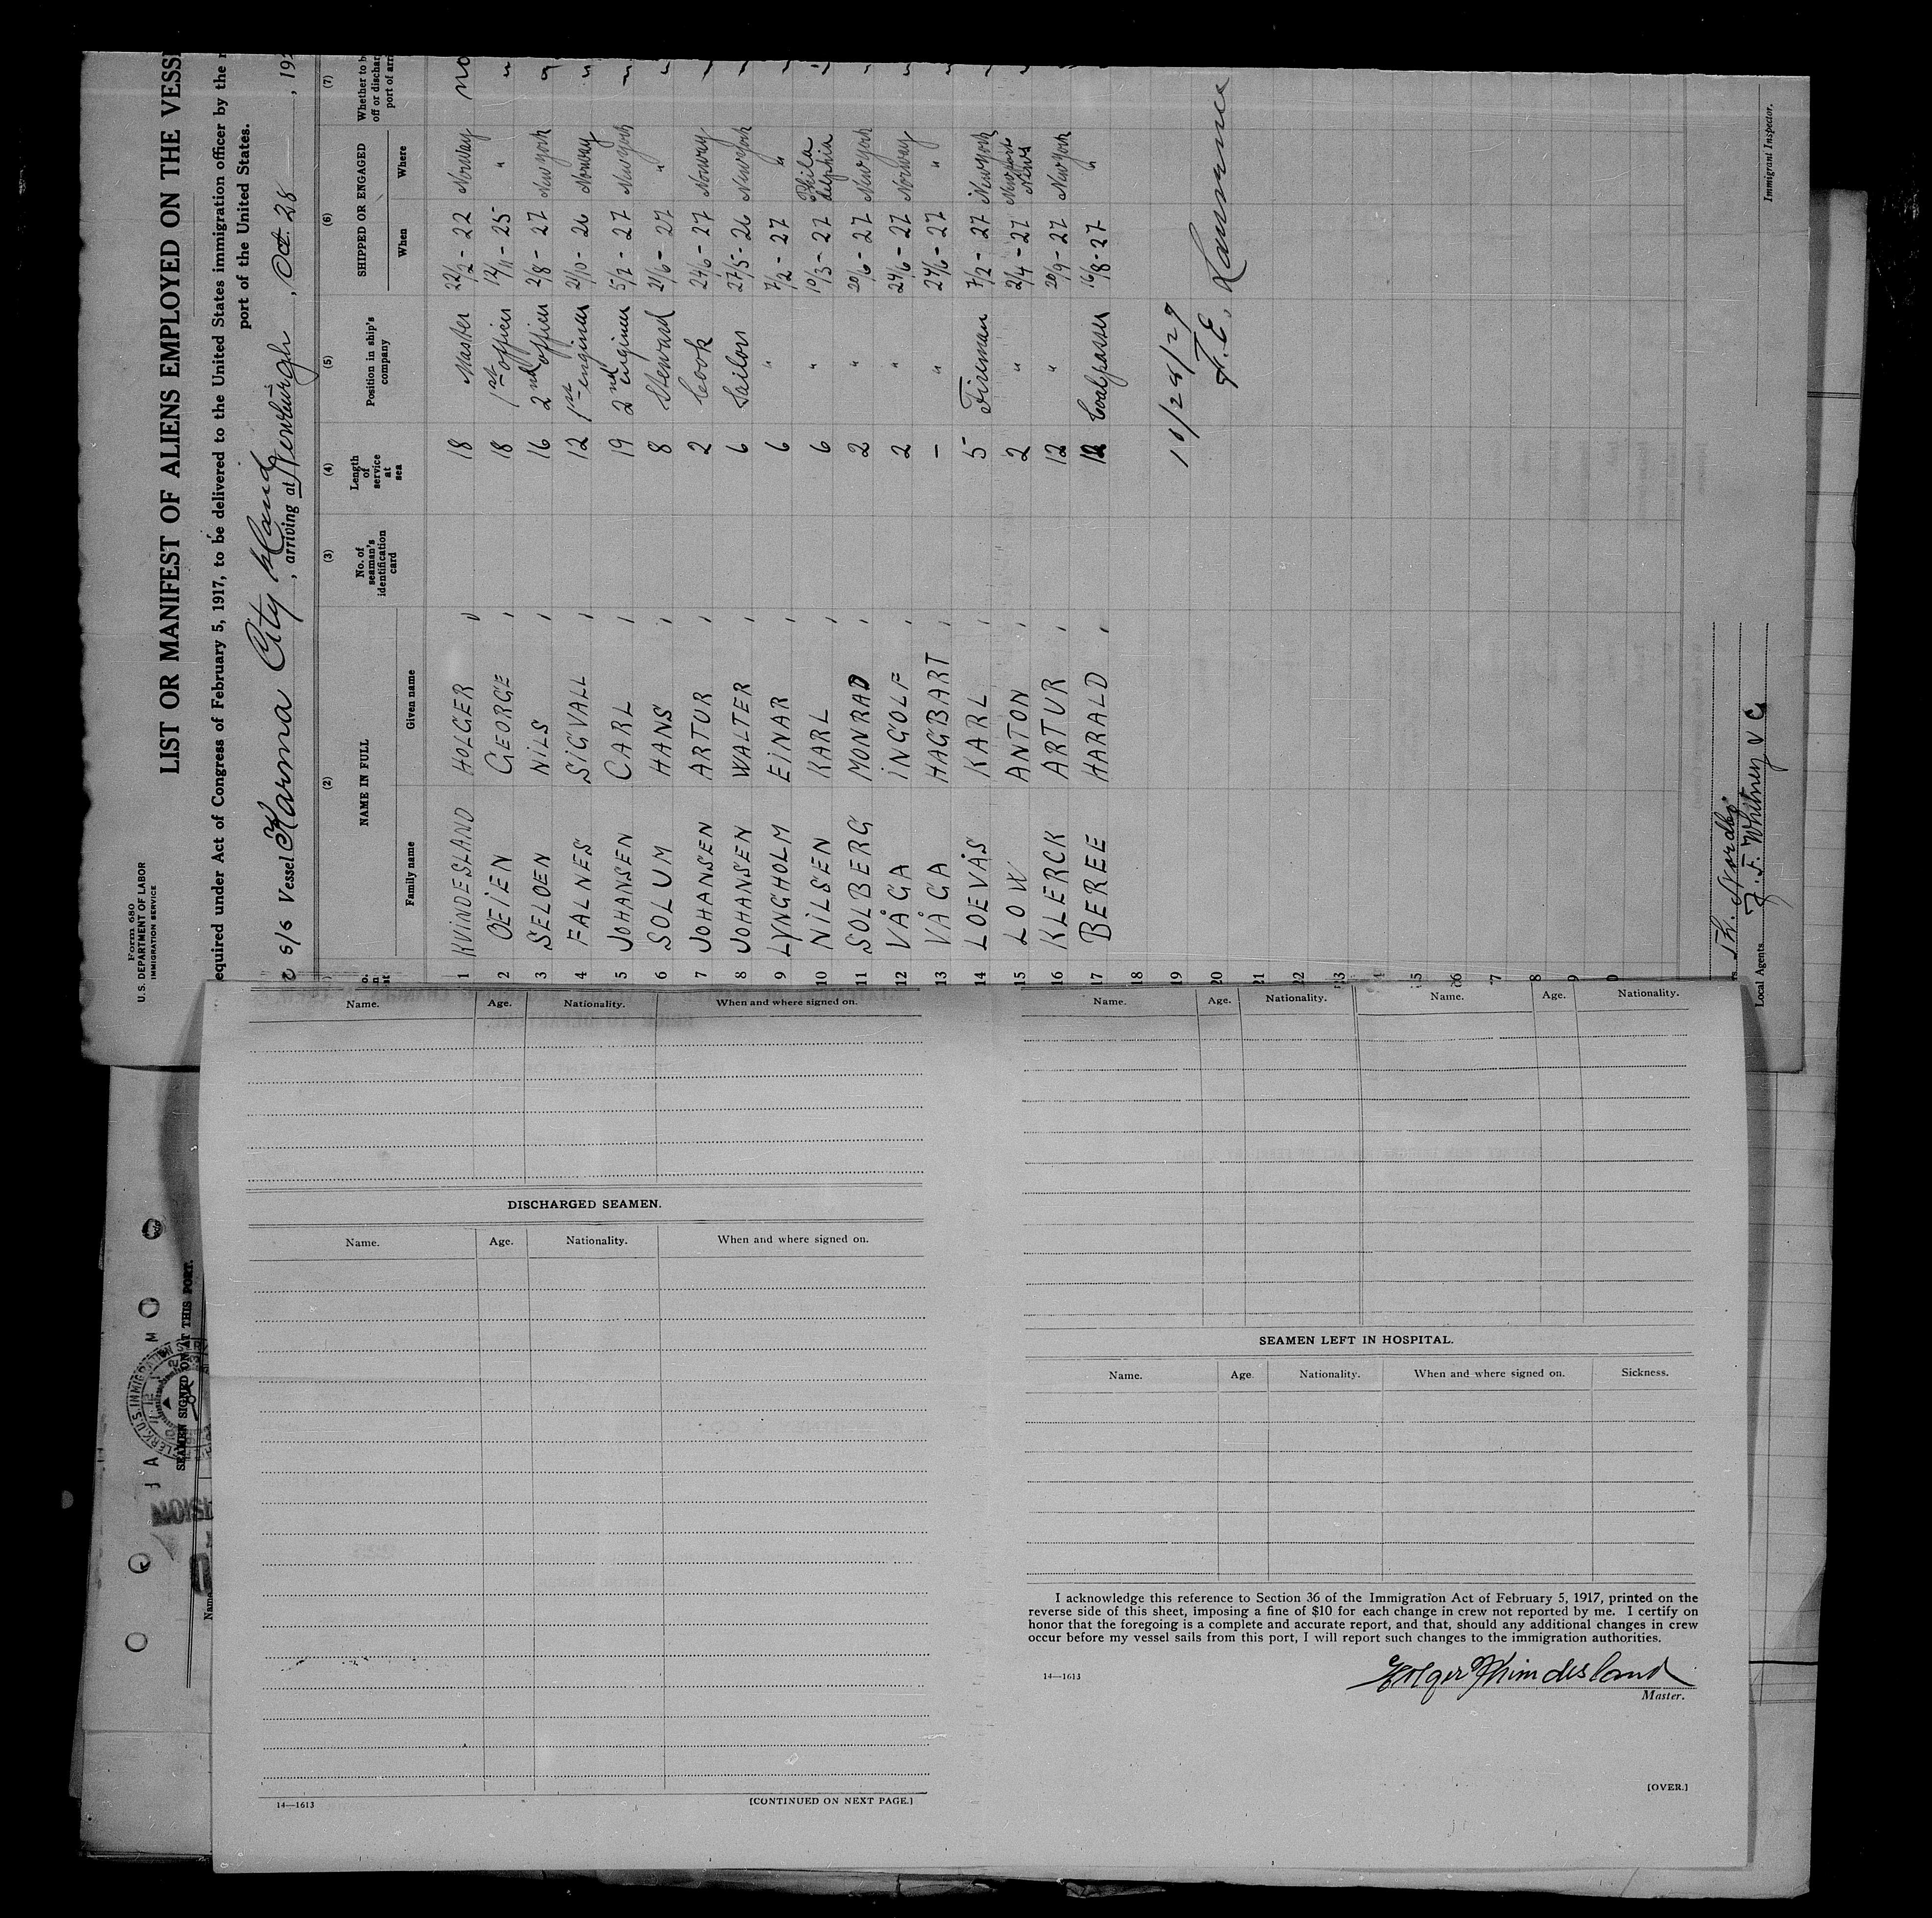 Form 680
U.S. DEPARTMENT OF LABOR
IMMIGRATION SERVICE
LIST OR MANIFEST OF ALIENS EMPLOYED ON THE VESSE
equired under Act of Congress of February 5, 1917, to be delivered to the United States immigration officer by the r
port of the United States.
s/s Vessel Karma City Island, arriving at Newburgh, Oct. 28, 19
(2) (3) (4) (5) (6) (7)
NAME IN FULL No. of seaman's identification card Length of service at sea Position in ship's company SHIPPED OR ENGAGED Whether to b off or dischar port of arri
Family name Given name When Where
1 KVINDESLAND HOLGER 18 Master 22/2-22 Norway no
2 OEIEN GEORGE 18 1st officer 12/11-25 "
3 SELOEN NILS 16 2nd officer 2/8-27 New york
4 FALNES SIGVALL 12 1st enginer 21/10-26 Norway
5 JOHANSEN CARL 19 2nd enginer 5/7-27 New york
6 SOLUM HANS 8 Steward 21/6-27 "
7 JOHANSEN ARTUR 2 Cook 24/6-27 Norway
8 JOHANSEN WALTER 6 Sailors 27/5-26 New york
9 LYNGHOLM EINAR 6 " 7/2-27 "
10 NILSEN KARL 6 " 10/3-27 Philadelphia
11 SOLBERG MONRAD 2 " 20/6-27 New york
12 VÅGA INGOLF 2 " 24/6-27 Norway
13 VÅGA HAGBART - " 24/6-27 "
14 LOEVÅS KARL 5 Fireman 7/2-27 New york
15 LOW ANTON 2 " 2/4-27 Newport News
16 KLERCK ARTUR 12 " 20/9-27 New york
17 BEREE HARALD 12 Coalpasser 16/8-27 "
18
19 10/28/27
20
21
22
23
24
Th. Nordby
Local Agents J. F. Whitney & Co
Immigrant Inspector.
SEAMEN SIGNED ON AT THIS PORT.
Name. Age. Nationality. When and where signed on.
DISCHARGED SEAMEN.
Name. Age. Nationality. When and where signed on.
14—1613 [CONTINUED ON NEXT PAGE.]
Name. Age. Nationality. Name. Age. Nationality.
SEAMEN LEFT IN HOSPITAL.
Name. Age. Nationality. When and where signed on. Sickness.
I acknowledge this reference to Section 36 of the Immigration Act of February 5, 1917, printed on the
reverse side of this sheet, imposing a fine of $10 for each change in crew not reported by me. I certify on
honor that the foregoing is a complete and accurate report, and that, should any additional changes in crew
occur before my vessel sails from this port, I will report such changes to the immigration authorities.
14—1613 Holger Kvindesland
Master.
[OVER.]